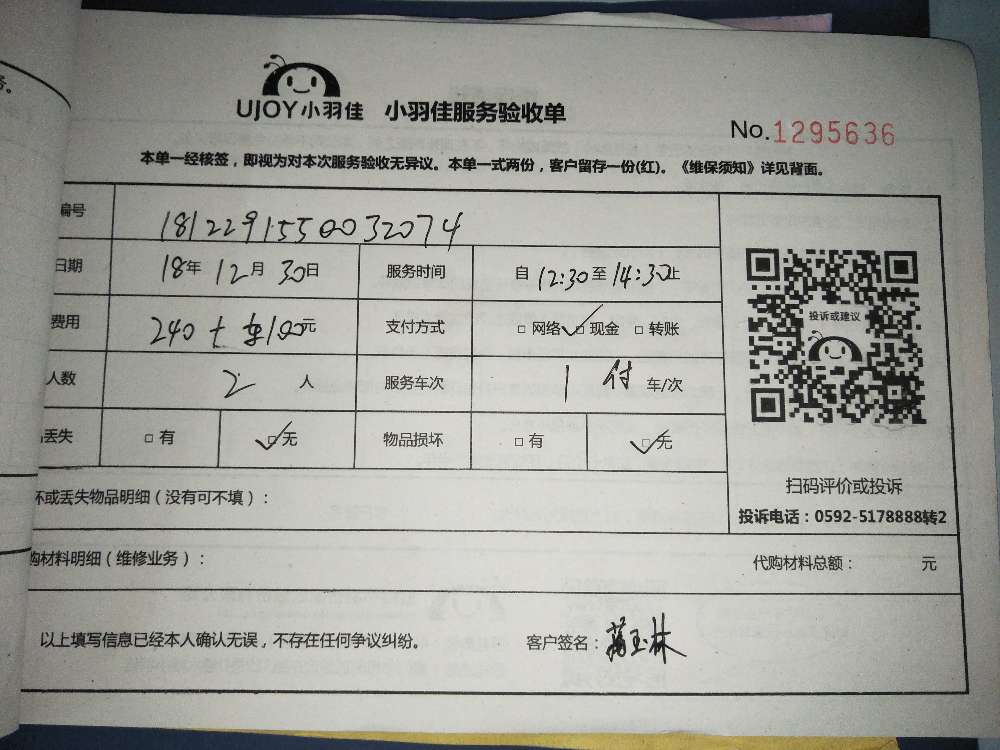 务。
UJOY小羽佳 小羽佳服务验收单
No.1295636
本单一经核签，即视为对本次服务验收无异议。本单一式两份，客户留存一份(红)。《维保须知》详见背面。
编号 1812291550032074
日期 18年 12月 30日 服务时间 自 12:30 至 14:30止
费用 240 + 车100元 支付方式 □ 网络 ☑ 现金 □ 转账
人数 2 人 服务车次 1 付 车/次
丢失 □ 有 ☑ 无 物品损坏 □ 有 ☑ 无
投诉或建议
扫码评价或投诉
投诉电话：0592-5178888转2
坏或丢失物品明细（没有可不填）：
购材料明细（维修业务）： 代购材料总额： 元
以上填写信息已经本人确认无误，不存在任何争议纠纷。 客户签名：玉林